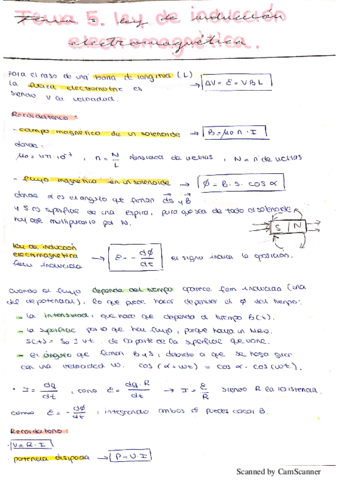 Tema 5. ley de inducción
electromagnética.
Para el caso de una barra de longitud (L)
la fuerza electromotriz es → ΔV = ε = VBL
siendo V la velocidad.
Recordatorio:
- campo magnético de un solenoide → B = μ₀ n · I
donde:
μ₀ = 4π·10⁻⁷, n = N/L densidad de vueltas, N = nº de vueltas
- flujo magnético en un solenoide → ϕ = B · S · cos α
donde α es el ángulo que forman ds y B
y S es superficie de una espira, para que sea de todo el solenoide
hay que multiplicarlo por N.
S N
ley de inducción
electromagnética → ε = - dϕ/dt el signo indica la oposición.
fem inducida
Cuando el flujo depende del tiempo aparece fem inducida (una
de potencial). lo que puede hacer depender el ϕ del tiempo:
- la intensidad, que hace que dependa el tiempo B(t).
- la superficie por la que hay flujo, porque haya un
S(t) = S₀ ± v t. de la parte de la superficie que varíe.
- el ángulo que forman B y S, debido a que se haga girar
con una velocidad w. cos (α - wt) = cos α · cos(wt).
· I = dq/dt, como ε = dq·R/dt → I = ε/R siendo R la resistencia.
como ε = - dϕ/dt, integrando ambos puedes sacar B.
Recordatorio:
V = R · I
potencia disipada → P = V · I
Scanned by CamScanner